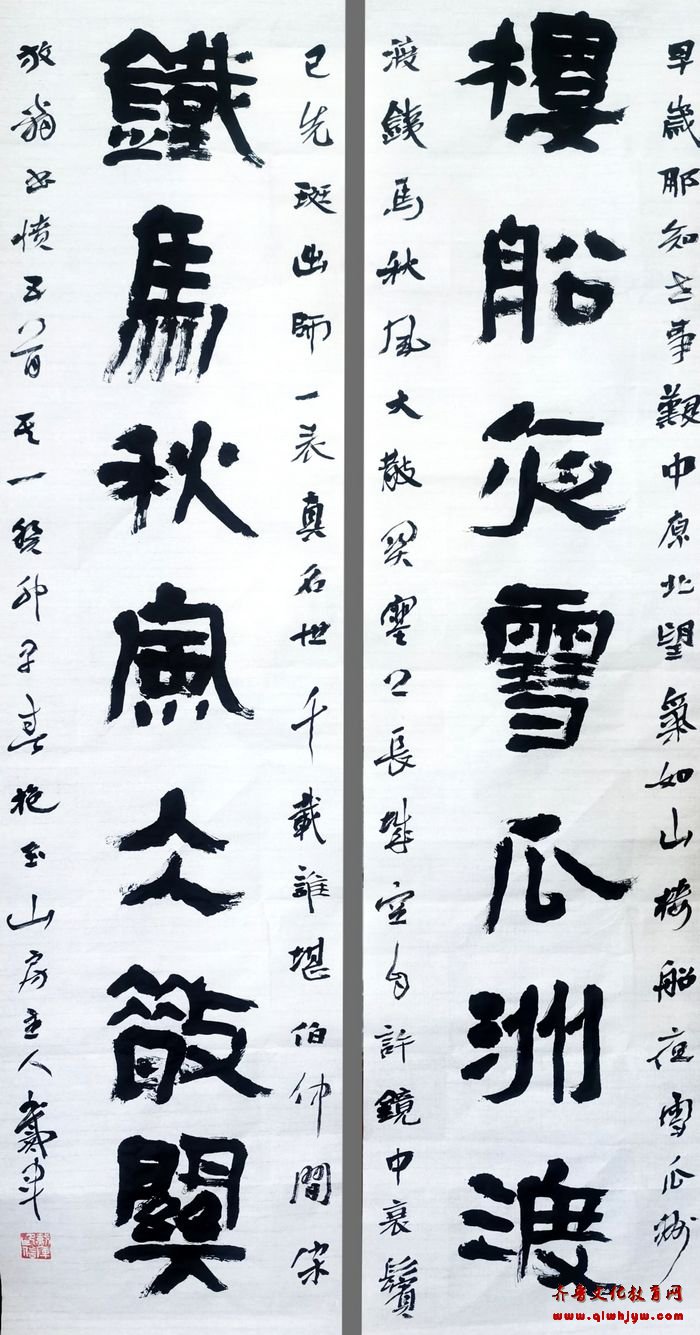 早歲那知世事艱中原北望氣如山樓船夜雪瓜洲
樓船夜雪瓜洲渡
渡鐵馬秋風大散關塞上長城空自許鏡中衰鬢
已先斑出師一表真名世千載誰堪伯仲間宋
鐵馬秋風大散關
放翁書憤五首其一癸卯早春抱玉山房主人戴軍
齐鲁文化教育网
www.qlwhjyw.com